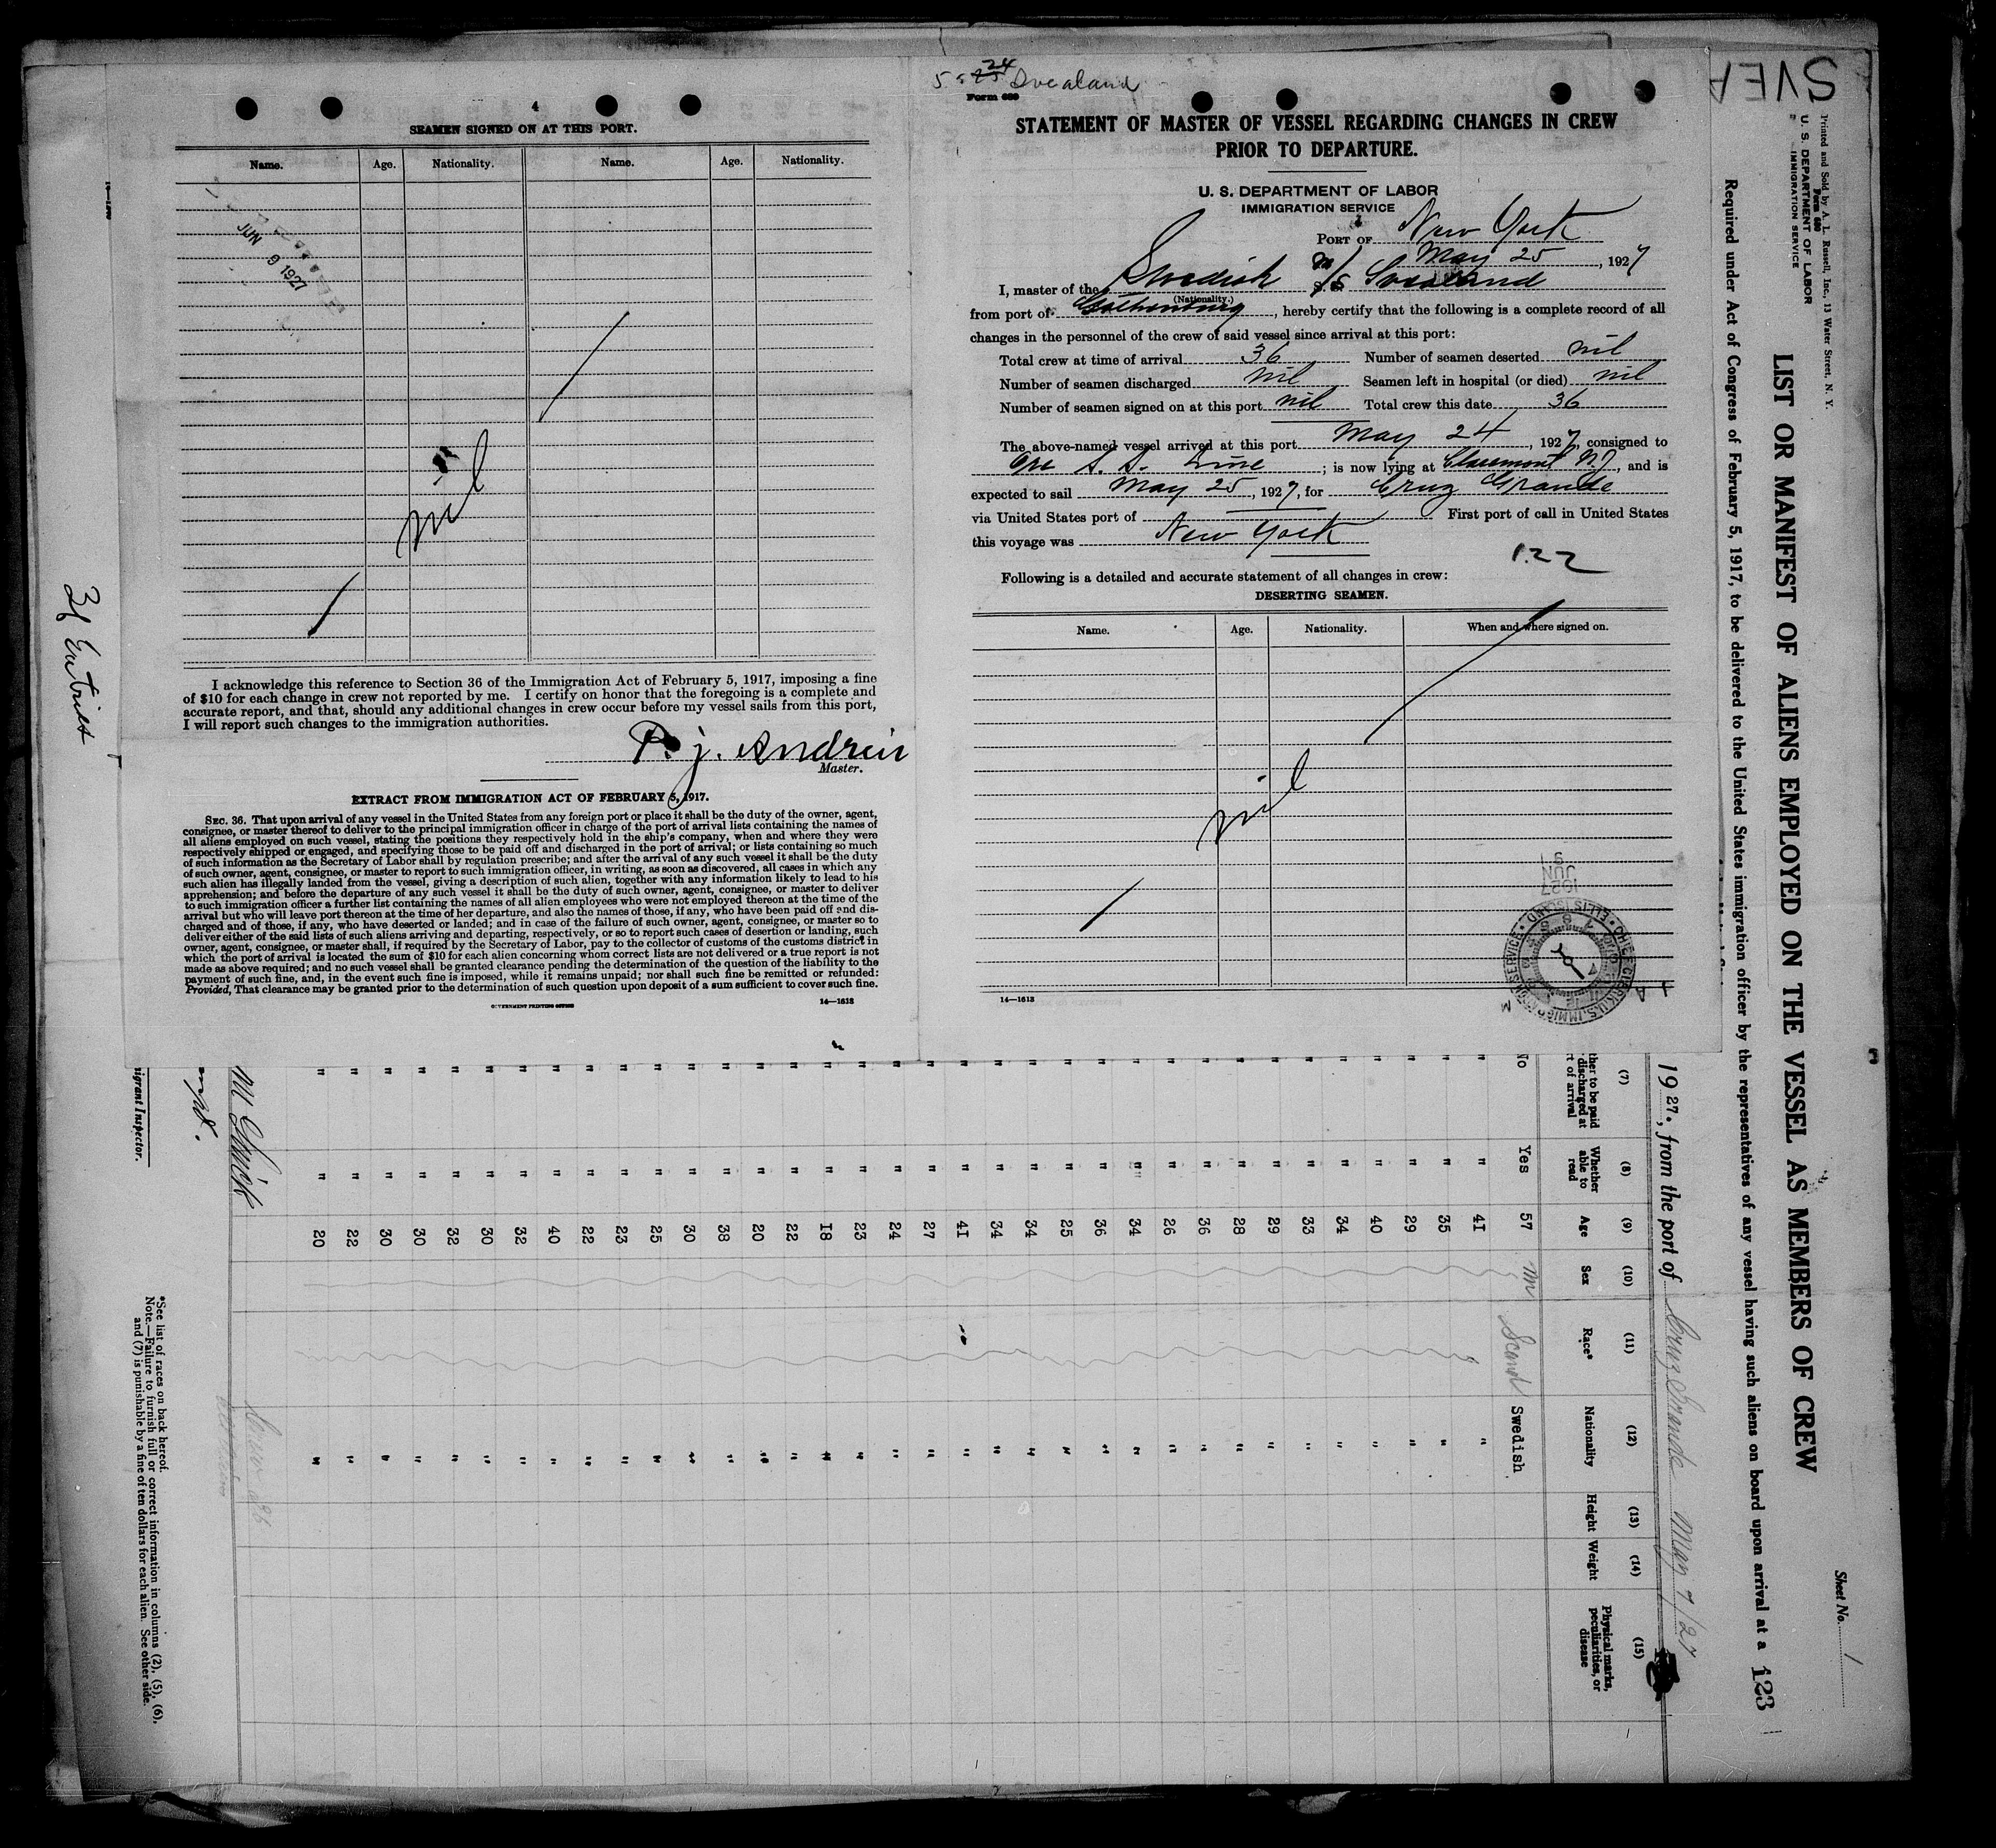 5-24 Svealand
Form 689
STATEMENT OF MASTER OF VESSEL REGARDING CHANGES IN CREW
PRIOR TO DEPARTURE.
U. S. DEPARTMENT OF LABOR
IMMIGRATION SERVICE
PORT OF New York
May 25, 1927
I, master of the Swedish M/S Svealand
(Nationality.)
from port of Gothenburg, hereby certify that the following is a complete record of all
changes in the personnel of the crew of said vessel since arrival at this port:
Total crew at time of arrival 36 Number of seamen deserted nil
Number of seamen discharged nil Seamen left in hospital (or died) nil
Number of seamen signed on at this port nil Total crew this date 36
The above-named vessel arrived at this port May 24, 1927, consigned to
Ore S. S. Line; is now lying at Claremont N.J., and is
expected to sail May 25, 1927, for Cruz Grande
via United States port of First port of call in United States
this voyage was New York
122
Following is a detailed and accurate statement of all changes in crew:
DESERTING SEAMEN.
Name. Age. Nationality. When and where signed on.
nil
14—1613
4
SEAMEN SIGNED ON AT THIS PORT.
Name. Age. Nationality. Name. Age. Nationality.
JUN 9 1927
nil
I acknowledge this reference to Section 36 of the Immigration Act of February 5, 1917, imposing a fine
of $10 for each change in crew not reported by me. I certify on honor that the foregoing is a complete and
accurate report, and that, should any additional changes in crew occur before my vessel sails from this port,
I will report such changes to the immigration authorities.
P. J. Andreir
Master.
EXTRACT FROM IMMIGRATION ACT OF FEBRUARY 5, 1917.
SEC. 36. That upon arrival of any vessel in the United States from any foreign port or place it shall be the duty of the owner, agent,
consignee, or master thereof to deliver to the principal immigration officer in charge of the port of arrival lists containing the names of
all aliens employed on such vessel, stating the positions they respectively hold in the ship's company, when and where they were
respectively shipped or engaged, and specifying those to be paid off and discharged in the port of arrival; or lists containing so much
of such information as the Secretary of Labor shall by regulation prescribe; and after the arrival of any such vessel it shall be the duty
of such owner, agent, consignee, or master to report to such immigration officer, in writing, as soon as discovered, all cases in which any
such alien has illegally landed from the vessel, giving a description of such alien, together with any information likely to lead to his
apprehension; and before the departure of any such vessel it shall be the duty of such owner, agent, consignee, or master to deliver
to such immigration officer a further list containing the names of all alien employees who were not employed thereon at the time of the
arrival but who will leave port thereon at the time of her departure, and also the names of those, if any, who have been paid off and dis-
charged and of those, if any, who have deserted or landed; and in case of the failure of such owner, agent, consignee, or master so to
deliver either of the said lists of such aliens arriving and departing, respectively, or so to report such cases of desertion or landing, such
owner, agent, consignee, or master shall, if required by the Secretary of Labor, pay to the collector of customs of the customs district in
which the port of arrival is located the sum of $10 for each alien concerning whom correct lists are not delivered or a true report is not
made as above required; and no such vessel shall be granted clearance pending the determination of the question of the liability to the
payment of such fine, and, in the event such fine is imposed, while it remains unpaid; nor shall such fine be remitted or refunded:
Provided, That clearance may be granted prior to the determination of such question upon deposit of a sum sufficient to cover such fine.
GOVERNMENT PRINTING OFFICE 14—1613
SVEA
Printed and Sold by A. L. Russell, Inc., 13 Water Street, N. Y.
Form 680
U. S. DEPARTMENT OF LABOR
IMMIGRATION SERVICE
Sheet No. 1
LIST OR MANIFEST OF ALIENS EMPLOYED ON THE VESSEL AS MEMBERS OF CREW
Required under Act of Congress of February 5, 1917, to be delivered to the United States immigration officer by the representatives of any vessel having such aliens on board upon arrival at a
123
1927, from the port of Cruz Grande May 7/27
(7) (8) (9) (10) (11) (12) (13) (14) (15)
ther to be paid discharged at rt of arrival
Whether able to read
Age
Sex
Race*
Nationality
Height
Weight
Physical marks, peculiarities, or disease
No Yes 57 M Scand Swedish
" " 41 "
" " 35 "
" " 29 "
" " 40 "
" " 34 "
" " 33 "
" " 29 "
" " 28 "
" " 36 "
" " 26 "
" " 34 "
" " 36 "
" " 25 "
" " 34 "
" " 34 "
" " 41 "
" " 27 "
" " 24 "
" " 23 "
" " 18 "
" " 22 "
" " 20 "
" " 38 "
" " 30 "
" " 25 "
" " 23 "
" " 22 "
" " 40 "
" " 32 "
" " 30 "
" " 32 "
" " 30 "
" " 30 "
" " 22 "
" " 20 "
igrant Inspector.
*See list of races on back hereof.
Note.—Failure to furnish full or correct information in columns (2), (5), (6),
and (7) is punishable by a fine of ten dollars for each alien. See other side.
36 Entries
CHIEF CLERK U.S. IMMIGRATION SERVICE • ELLIS ISLAND •
1927 JUN 9